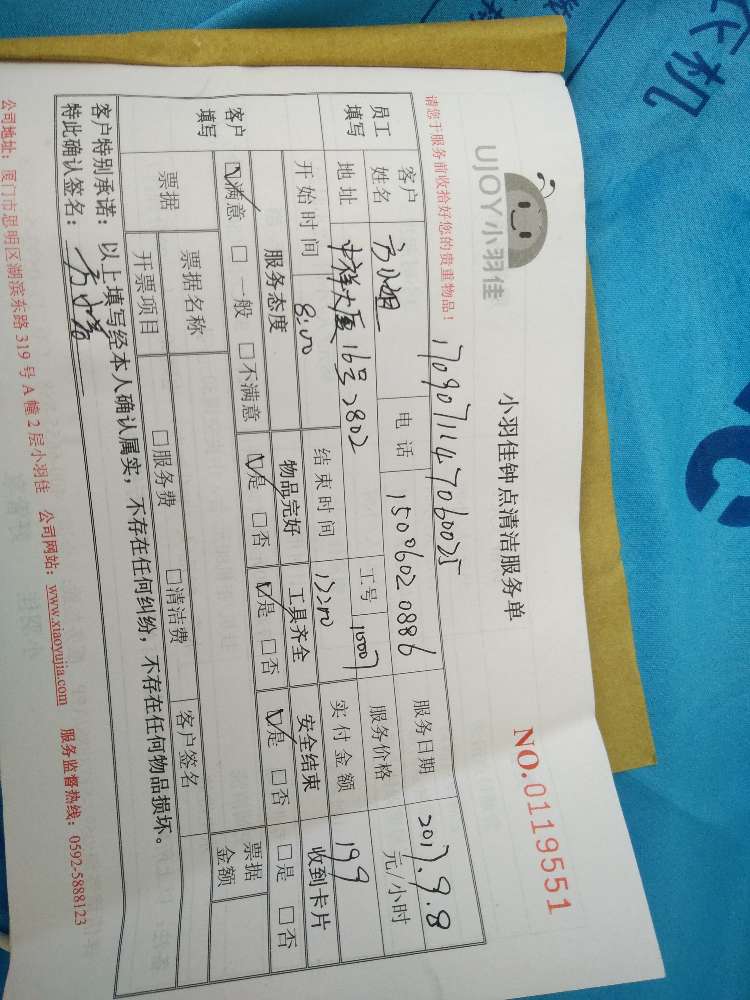 UJOY小羽佳
小羽佳钟点清洁服务单
NO.0119551
请您于服务前收拾好您的贵重物品！
1709071147060025
员工填写
客户姓名 方小姐 电话 15006020886 服务日期 2017.9.8
地址 中祥大厦16号2802 工号 10007 服务价格 元/小时
开始时间 8:00 结束时间 12:00 实付金额 199
客户填写
服务态度 物品完好 工具齐全 安全结束 收到卡片
☑满意 □一般 □不满意 ☑是 □否 ☑是 □否 ☑是 □否 □是 □否
票据 票据名称 客户签名 票据金额
开票项目 □服务费 □清洁费
客户特别承诺：以上填写经本人确认属实，不存在任何纠纷，不存在任何物品损坏。
特此确认签名：
公司地址：厦门市思明区湖滨东路319号A幢2层小羽佳 公司网站：www.xiaoyujia.com 服务监督热线：0592-5888123
机